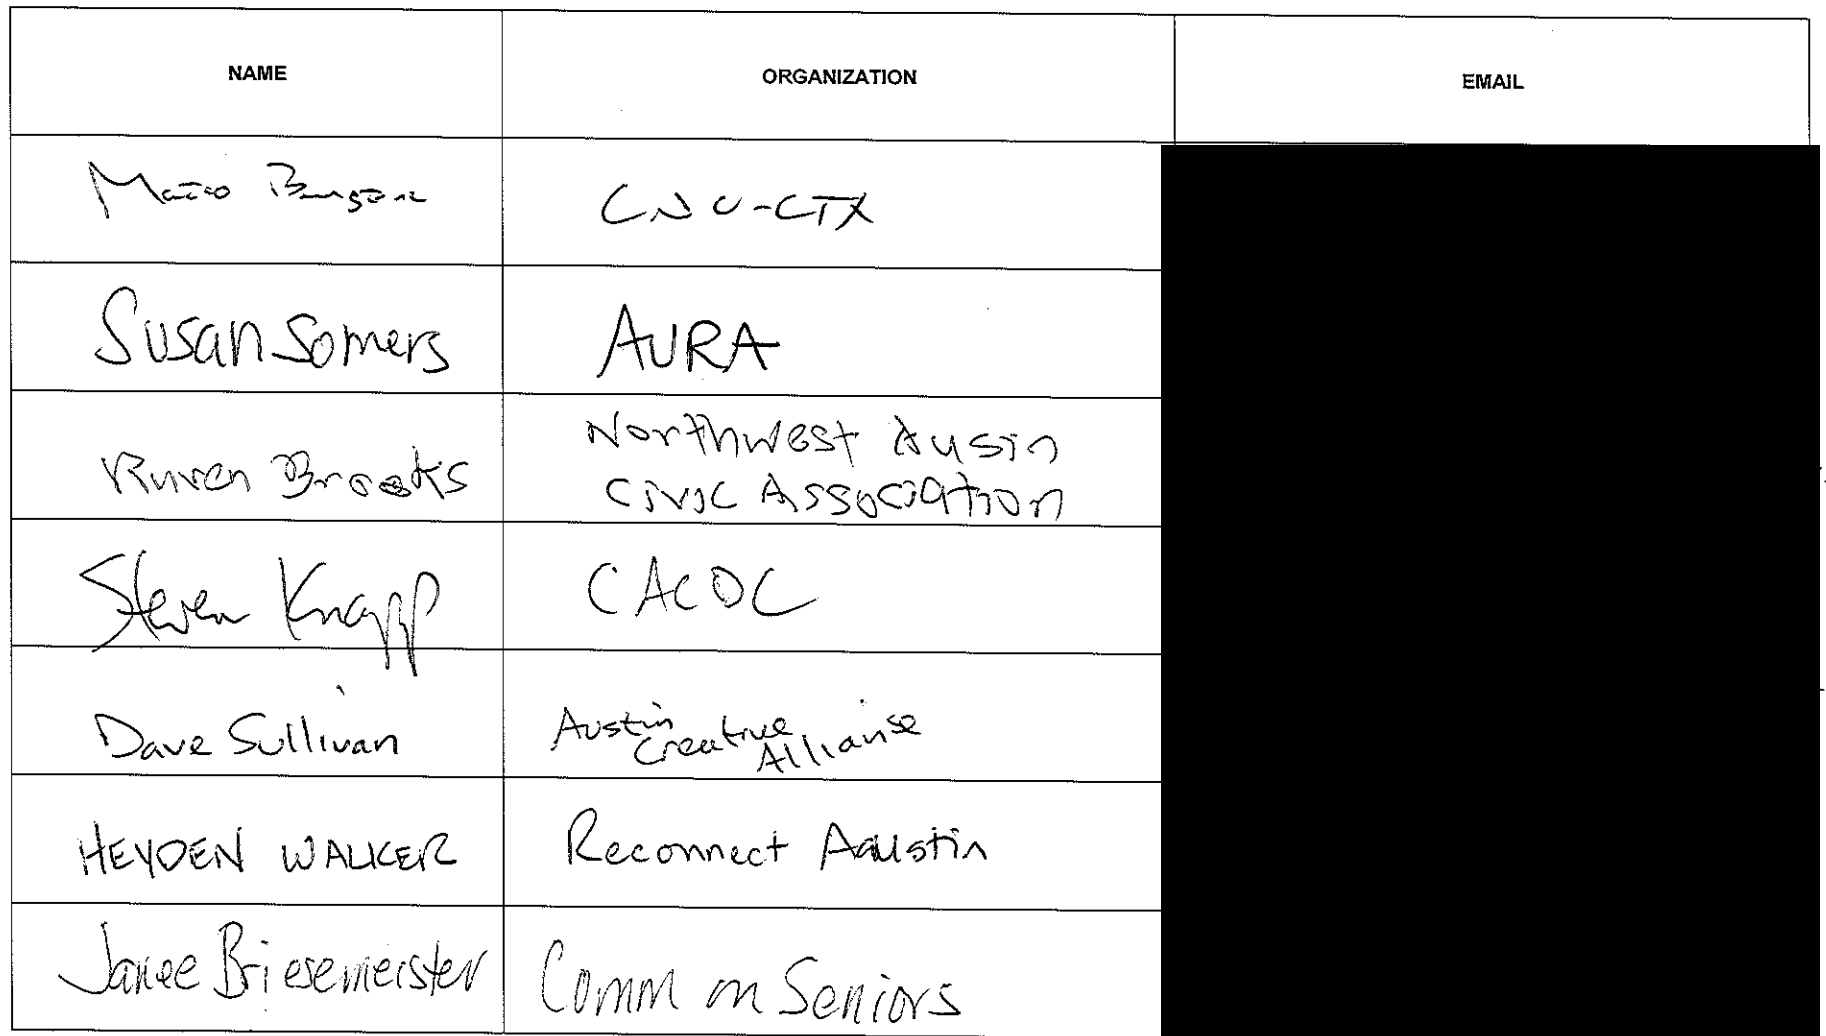 NAME ORGANIZATION EMAIL
CNU-CTX
Susan Somers AURA
Ruven Brooks Northwest Ausin
Civic Association
Steven Knapp CACDC
Dave Sullivan Austin
Creative
Allianse
HEYDEN WALKER Reconnect Aaustin
Janee Briesemeister Comm on Seniors